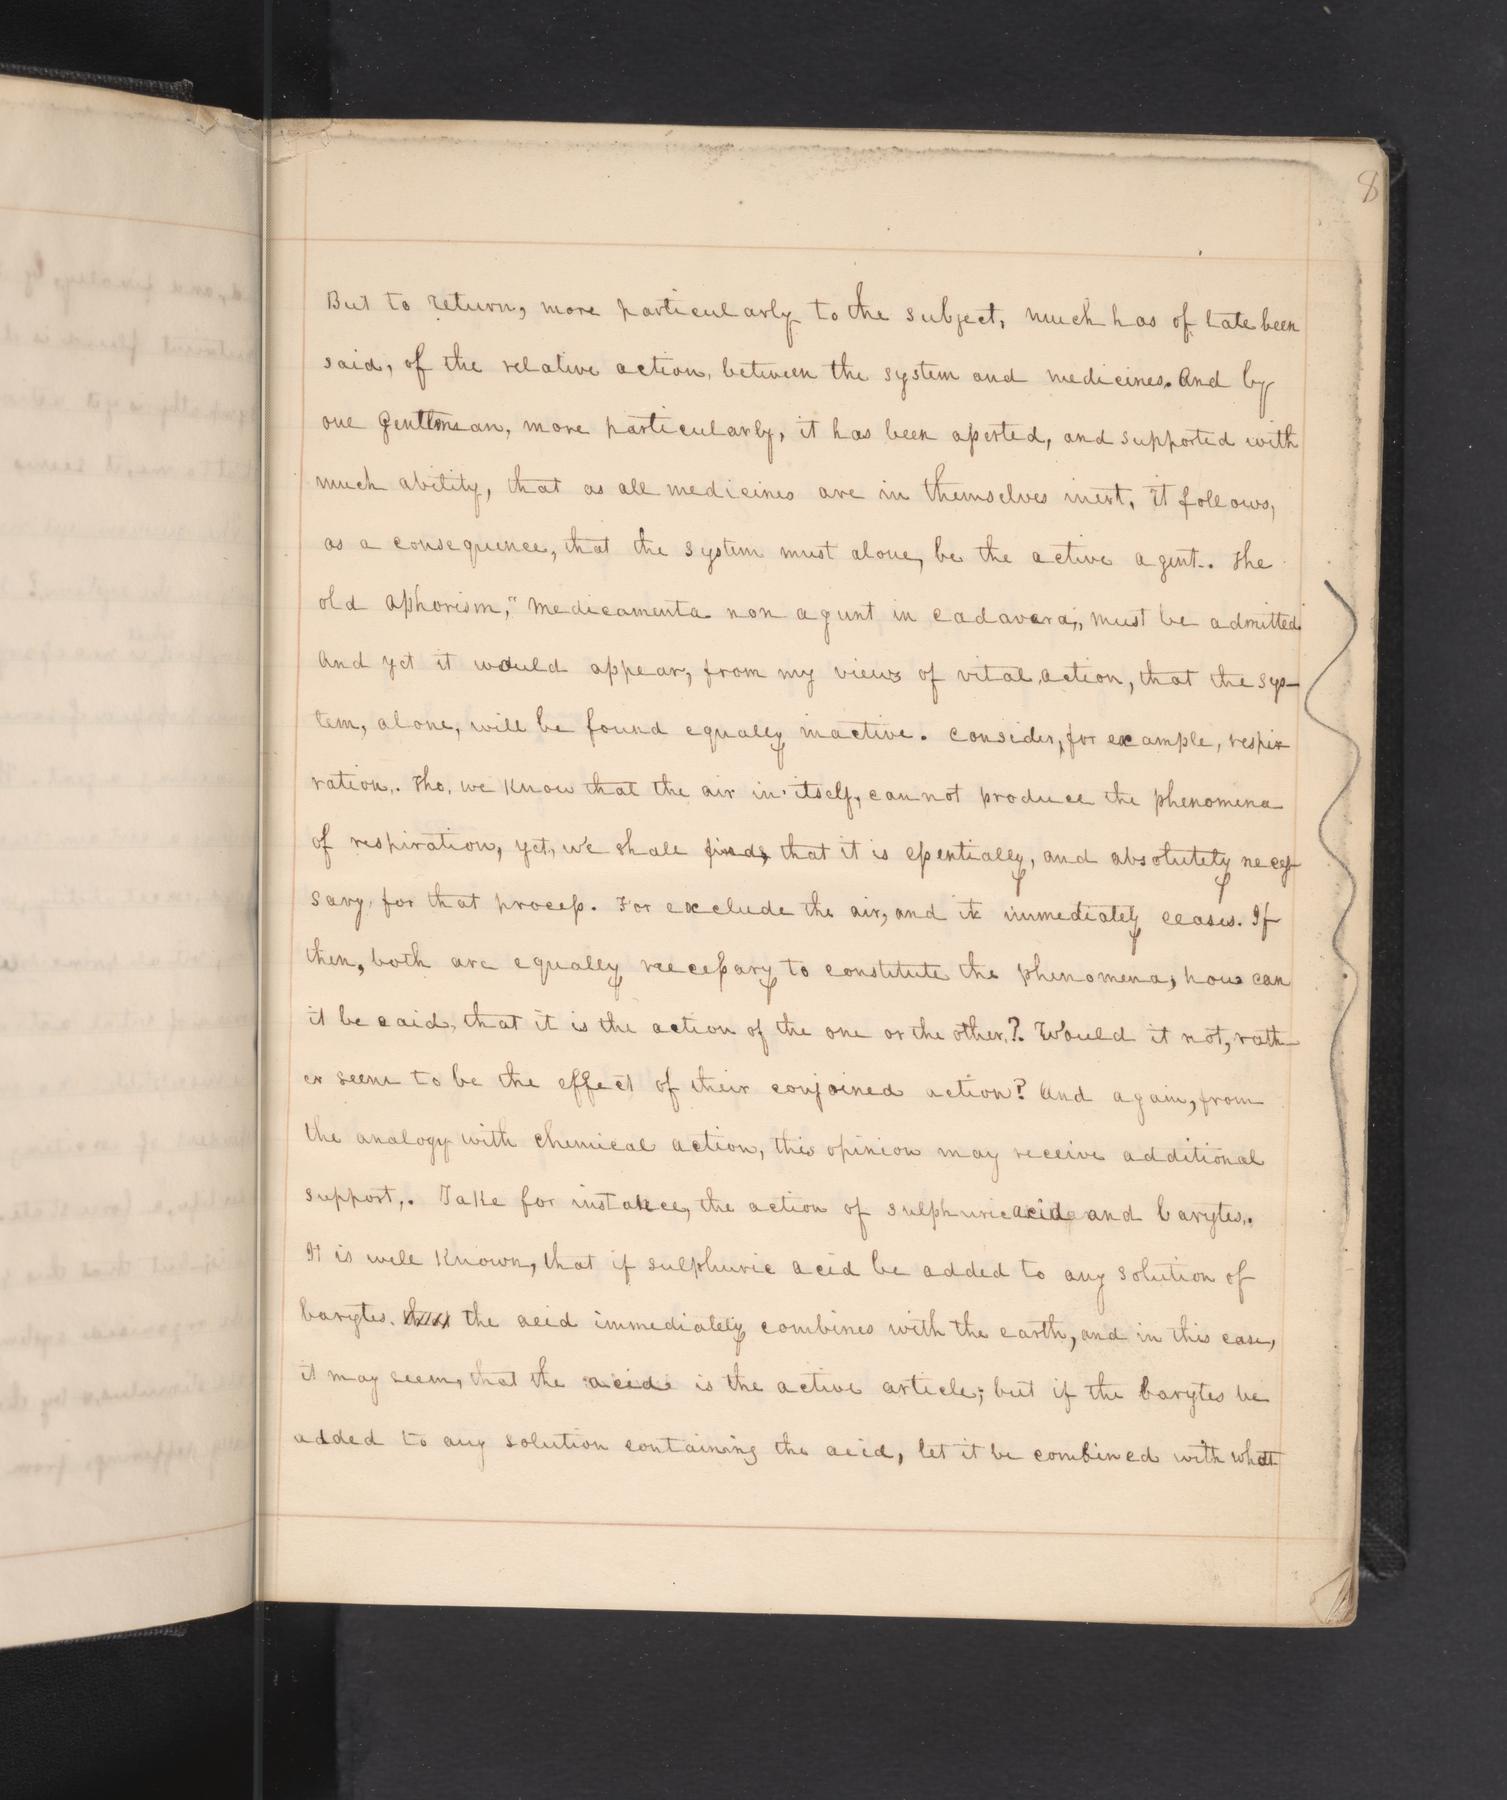 8
But to return, more particularly to the subject, much has of late been
said, of the relative action, between the system and medicines. And by
one gentleman, more particularly, it has been asserted, and supported with
much ability, that as all medicines are in themselves inert, it follows,
as a consequence, that the system must alone, be the active agent. The
old aphorism, "medicamenta non agunt in cadavera", must be admitted
And yet it would appear, from my views of vital action, that the sys-
tem, alone, will be found equally inactive. Consider, for example, respir
ration. Tho, we know that the air in itself, cannot produce the phenomena
of respiration, yet, we shall find, that it is essentially, and absolutely neces
sary, for that process. For exclude the air, and it immediately ceases. If
then, both are equally necessary to constitute the phenomena, how can
it be said, that it is the action of the one or the other? Would it not, rath-
er seem to be the effect of their conjoined action? And again, from
the analogy with chemical action, this opinion may receive additional
support. Take for instance, the action of sulphuric acid and barytes.
It is well known, that if sulphuric acid be added to any solution of
barytes. the acid immediately combines with the earth, and in this case,
it may seem, that the acid is the active article; but if the barytes be
added to any solution containing the acid, let it be combined with what